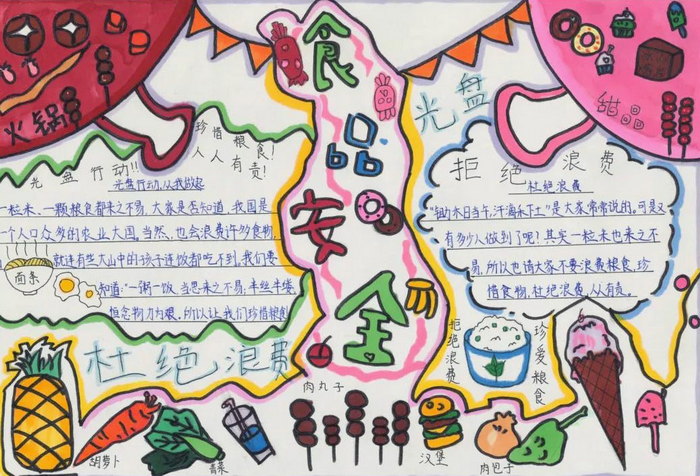 火锅
食品安全
光盘
甜品
珍惜粮食!
人人有责!
光盘行动!!
光盘行动,从我做起
一粒米、一颗粮食都来之不易,大家是否知道,我国是
一个人口众多的农业大国。当然,也会浪费许多食物,
就连有些大山中的孩子连饭都吃不到。我们要
知道:“一粥一饭,当思来之不易,半丝半缕,
恒念物力为艰,所以让我们珍惜粮食
面条
杜绝浪费
拒绝浪费
杜绝浪费
“锄禾日当午,汗滴禾下土”是大家常常说的。可是又
有多少人做到了呢?其实一粒米也来之不
易,所以也请大家不要浪费粮食,珍
惜食物,杜绝浪费,从有责。
拒绝浪费
珍爱粮食
肉丸子
胡萝卜
青菜
汉堡
肉包子